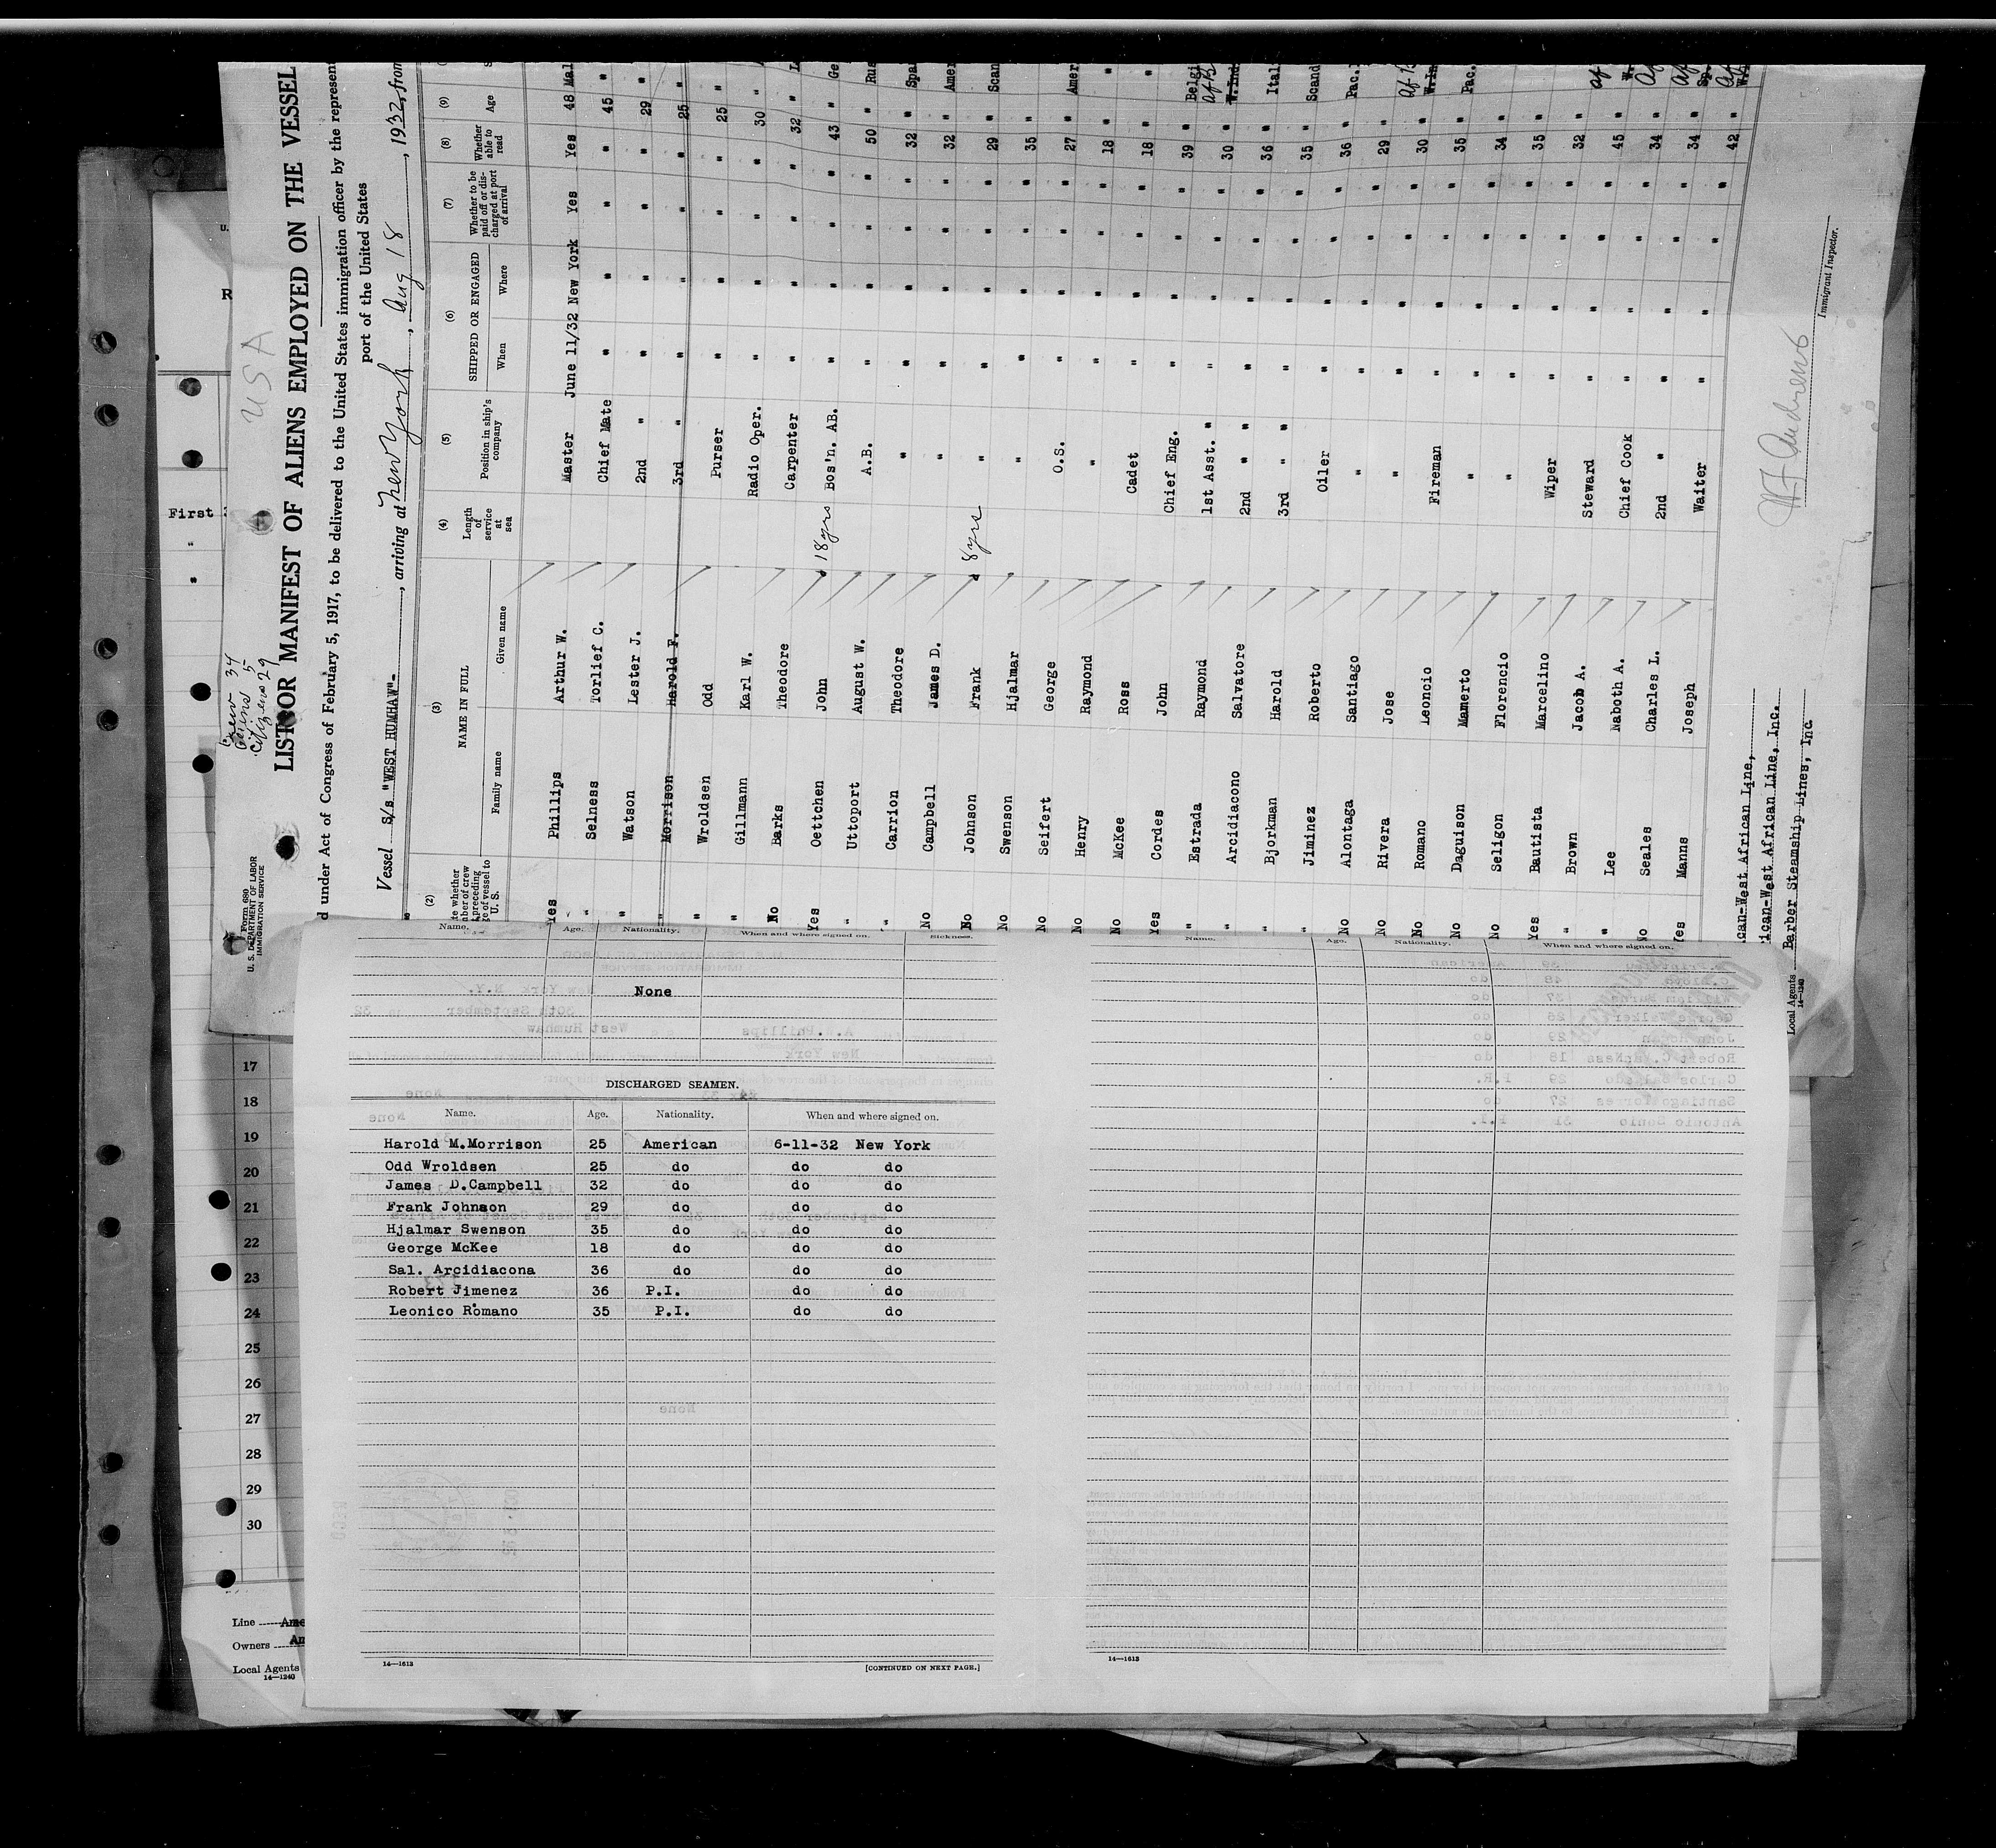 Crew 34
Aliens 5
Citizens 29
U S A
Form 680
U. S. DEPARTMENT OF LABOR
IMMIGRATION SERVICE
LIST OR MANIFEST OF ALIENS EMPLOYED ON THE VESSEL
d under Act of Congress of February 5, 1917, to be delivered to the United States immigration officer by the represen
port of the United States
Vessel S/s "WEST HUMHAW"- , arriving at New York , Aug 18 , 1932, from
(2) (3) (4) (5) (6) (7) (8) (9)
NAME IN FULL
Family name Given name
Length of service at sea
Position in ship's company
SHIPPED OR ENGAGED
When Where
Whether to be paid off or discharged at port of arrival
Whether able to read
Age
Yes Phillips Arthur W. Master June 11/32 New York Yes Yes 48 Mal
" Selness Torlief C. Chief Mate " " " " 45 "
" Watson Lester J. 2nd " " " " " 29 "
" Morrison Harold F. 3rd " " " " " 25 "
" Wroldsen Odd Purser " " " " 25 "
" Gillmann Karl W. Radio Oper. " " " " 30 "
No Barks Theodore Carpenter " " " " 32 "
Yes Oettchen John 18 yrs Bos'n. AB. " " " " 43 " Ge
" Uttoport August W. A.B. " " " " 50 " Rus
" Carrion Theodore " " " " " 32 " Spa
No Campbell James D. " " " " " 32 " Amer
No Johnson Frank 8 yrs " " " " " 29 " Scan
No Swenson Hjalmar " " " " " 35 "
No Seifert George O.S. " " " " 27 " Amer
No Henry Raymond " " " " " 18 " "
No McKee Ross Cadet " " " " 18 " "
Yes Cordes John Chief Eng. " " " " 39 " Belgi
" Estrada Raymond 1st Asst. " " " " " 30 " W.Ind
" Arcidiacono Salvatore 2nd " " " " " 36 " Ital
" Bjorkman Harold 3rd " " " " " 35 " Scand
" Jiminez Roberto Oiler " " " " 36 " Pac.
No Alontaga Santiago " " " " " 29 "
No Rivera Jose " " " " " 30 " W.In
No Romano Leoncio Fireman " " " " 35 " Pac.
No Daguison Mamerto " " " " " 34 "
No Seligon Florencio " " " " " 35 "
Yes Bautista Marcelino Wiper " " " " 32 "
" Brown Jacob A. Steward " " " " 45 "
" Lee Naboth A. Chief Cook " " " " 34 "
No Seales Charles L. 2nd " " " " " 34 "
Yes Manns Joseph Waiter " " " " 42 "
can-West African Line,
ican-West African Line, Inc.
Local Agents Barber Steamship Lines, Inc
14—1240
Immigrant Inspector.
First
Name. Age. Nationality. When and where signed on. Sickness.
None
DISCHARGED SEAMEN.
Name. Age. Nationality. When and where signed on.
Harold M.Morrison 25 American 6-11-32 New York
Odd Wroldsen 25 do do do
James D.Campbell 32 do do do
Frank Johnson 29 do do do
Hjalmar Swenson 35 do do do
George McKee 18 do do do
Sal. Arcidiacona 36 do do do
Robert Jimenez 36 P.I. do do
Leonico Romano 35 P.I. do do
14—1613 [CONTINUED ON NEXT PAGE.]
Name. Age. Nationality. When and where signed on.
14—1613
17
18
19
20
21
22
23
24
25
26
27
28
29
30
Line Ame
Owners Am
Local Agents
14—1240